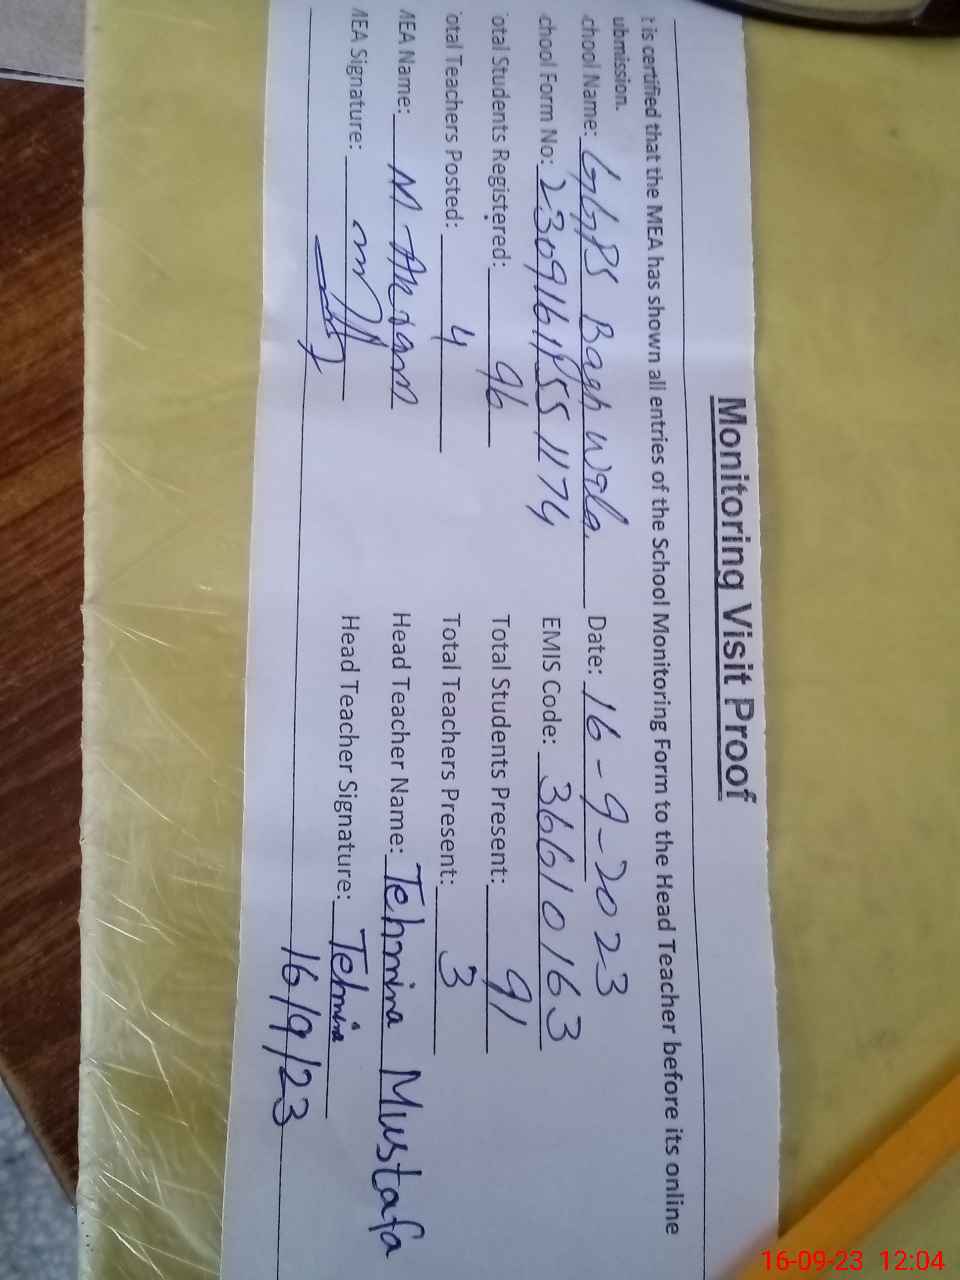 Monitoring Visit Proof
t is certified that the MEA has shown all entries of the School Monitoring Form to the Head Teacher before its online
ubmission.
chool Name: GGPS Bagh wala. Date: 16-9-2023
chool Form No: 2309161855 1174 EMIS Code: 36610163
otal Students Registered: 96 Total Students Present: 91
otal Teachers Posted: 4 Total Teachers Present: 3
MEA Name: M. Akram Head Teacher Name: Tehmina Mustafa
MEA Signature: Head Teacher Signature: Tehmina
16/9/23
16-09-23 12:04